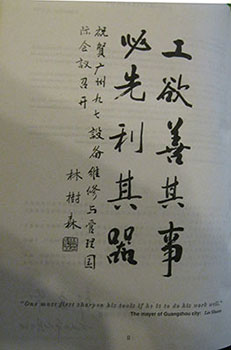 工欲善其事
必先利其器
祝贺广州九七设备维修与管理国
际会议召开
林树森
"One must first sharpen his tools if he is to do his work well."
The mayor of Guangzhou city: